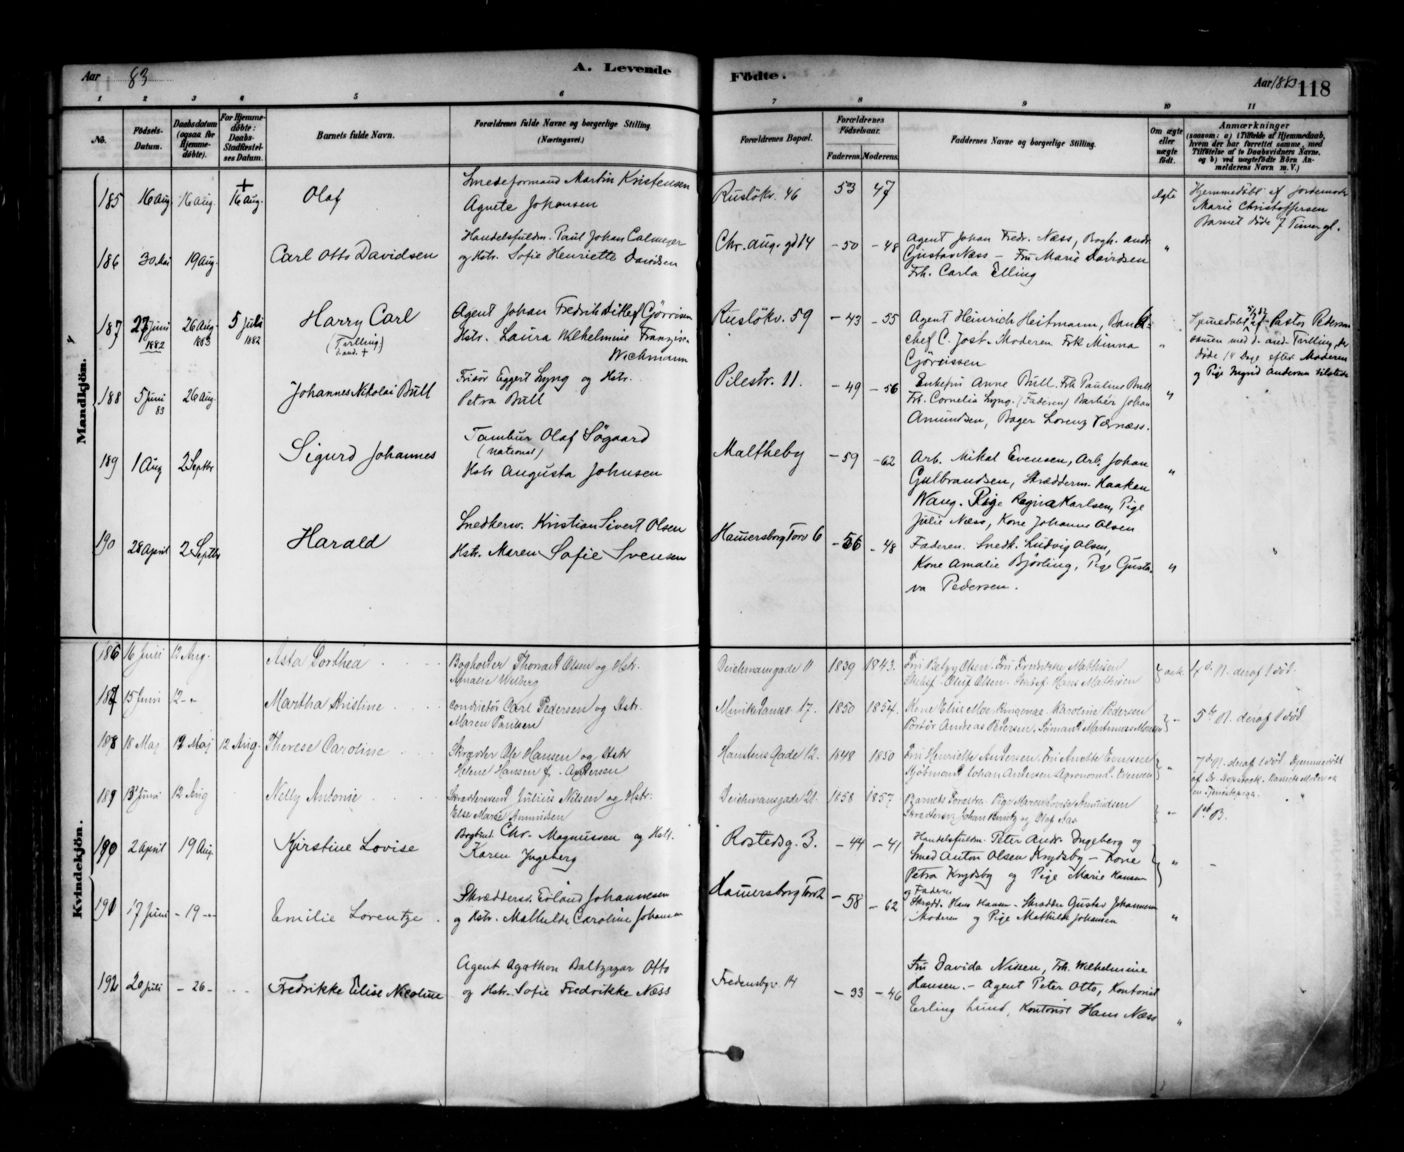 Aar 83
A. Levende
Födte.
Aar 1883 118
1 2 3 4 5 6 7 8 9 10 11
No.
Födsels-Datum.
Daabsdatum (ogsaa for Hjemmedöbte).
For Hjemmedöbte: Daabs-Stadfæstelses Datum.
Barnets fulde Navn.
Forældrenes fulde Navne og borgerlige Stilling. (Næringsvei.)
Forældrenes Bopæl.
Forældrenes Födselsaar.
Faderens. Moderens.
Faddernes Navne og borgerlige Stilling.
Om ægte eller uægte födt.
Anmærkninger
Mandkjön.
185 16 Aug 16 Aug. + 16 Aug. Olaf
Smedeformand Martin Kristensen
Agnete Johansen
Rusløkv. 46 53 47 ægte
Hjemmedöbt af Jordemoder
Marie Christoffersen
Barnet döde 7 Timer gl.
186 30 Mai 19 Aug. Carl Otto Davidsen
Handelsfuldm. Paul Johan Calmeyer
og Hstr. Sofie Henriette Davidsen
Chr. Aug. gd 14 - 50 - 48
Agent Johan Fredr. Næss, Bogh. Andr.
Gustav Næss - Fru Marie Davidsen
Frk. Carla Elling "
187 27 Juni 1882 26 Aug. 1883 5 Juli 1882 Harry Carl
(Tvilling)
Agent Johan Fredrik Ditlef Gjörrisen
Hstr. Laura Vilhelmine Franziska
Wichmann
Rusløkv. 59 - 43 - 55
Agent Heinrich Heitmann, Bank-
chef C. Jost. Moderen Frk Minna
Gjörrissen "
Hjemedöbt af Pastor Pedersen
sammen med d. and. Tvilling, der
döde 14 Dage efter. Moderen
og Pige Ingrid Andersen tilstede
188 5 Juni 83 26 Aug. Johannes Nikolai Bull
Frisör Eggert Lyng og Hstr.
Petra Bull
Pilestr. 11. - 49 - 56
Enkefru Anne Bull. Frk Pauline Bull
Frk. Cornelia Lyng. (Faderen) Barbér Johan
Amundsen, Bager Lorenz Værnæss. "
189 1 Aug 2 Septbr Sigurd Johannes
Tambur Olaf Søgaard
(national)
Hstr Augusta Johnsen
Maltheby - 59 - 62
Arb. Mikal Evensen, Arb. Johan
Gulbrandsen, Skræddern. Haaken
Wang. Pige Ragna Karlsen, Pige
Julie Næss, Kone Johanne Olsen "
190 28 April 2 Septbr Harald
Snedkersv. Kristian Sivert Olsen
Hstr. Maren Sofie Svensen
Hamersborg Torv 6 - 56 - 48
Faderen. Snedk. Ludvig Olsen,
Kone Amalie Bjørling, Pige Gusta-
va Pedersen. "
Kvindekjön.
186 16 Juni 12 Aug. Asta Dorthea
Bogholder Thorvart Olsen og Hstr.
Amalie Wiborg
Deichmansgade 11 1839 1843.
4de B. deraf 1 död.
187 15 Juni 12 - Martha Kristine
Conduktör Carl Pedersen og Hstr.
Maren Paulsen
Munkedams 17. 1850 1854.
Kone Elise Moe. Ungemø. Karoline Pedersen
Portör Andreas Petersen, Sömand Martinius Monsen
5te B. deraf 1 död
188 18 Maj 13 Maj 12 Aug. Therese Caroline
Skrædder Ole Hansen og Hstr
Helene Hansen f. Andersen
Hausmans Gade 12. 1848 1850
Fru Henriette Andersen. Fru Anette Evensen
Kjöbmand Johan Andersen Agronom L. Evensen
7de B. deraf 1 död. Hjemmedöbt
189 13 Juni 12 Aug Nelly Antonie
Skræddersvend Julius Nilsen og Hstr.
Else Marie Amundsen
Deichmansgade 21. 1858 1857.
Barnets Forældre. Pige Maren Lovise Amundsen
1st B.
190 2 April 19 Aug. Kirstine Lovise
Bogbind. Chr. Magnussen og Hstr.
Karen Ingeberg
Rostedsg. 3. - 44 - 41
Handelsfuldm. Peter Andr. Ingeberg og
Smed Anton Olsen Krydsby - Kone
Petra Krydsby og Pige Marie Hansen
og Faderen "
191 17 Juni - 19 - Emilie Lorentze
Skræddersv. Erland Johannesen
og Hstr. Mathilde Caroline Johansen
Hamersborg Torv 2 - 58 - 62
Skrædd. Hans Hansen - Skrædder Gustav Johannesen
Moderen og Pige Mathilde Johansen "
192 20 Juli - 26 - Fredrikke Elise Nicoline
Agent Agathon Baltzazar Otto
og Hstr. Sofie Fredrikke Næss
Fredensby. 14 - 33 - 46
Fru Davida Nissen, Frk. Wilhelmine
Hansen. - Agent Peter Otto, Kontorist
Erling Lund, Kontorist Hans Næss "